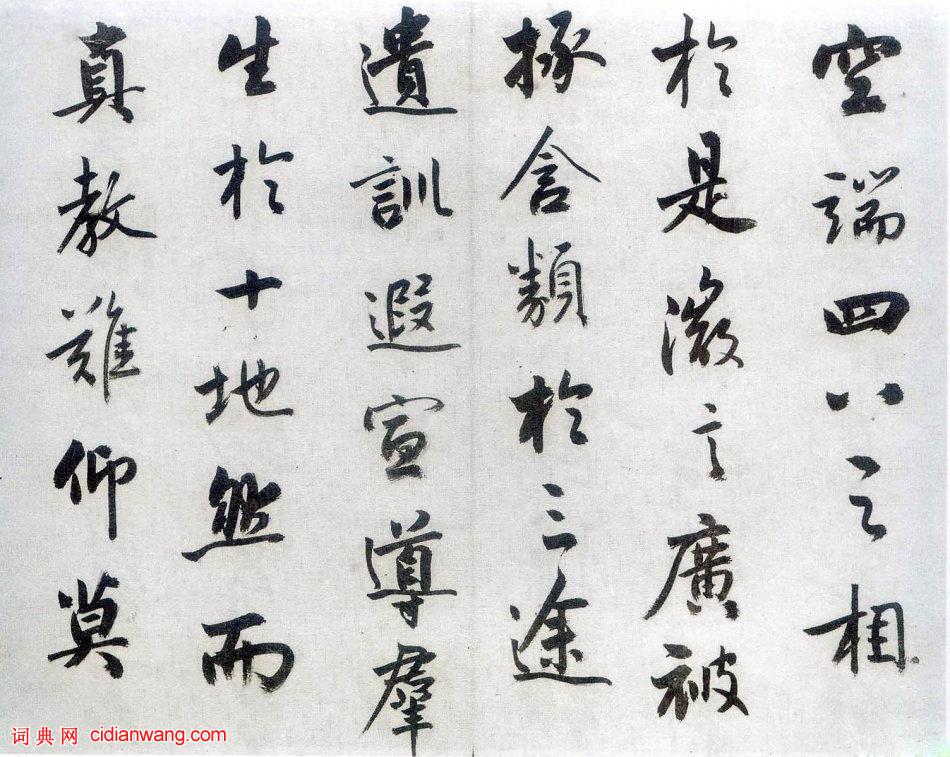 空端四八之相
於是微言廣被
拯含類於三途
遺訓遐宣導羣
生於十地然而
真教難仰莫
词典网 cidianwang.com